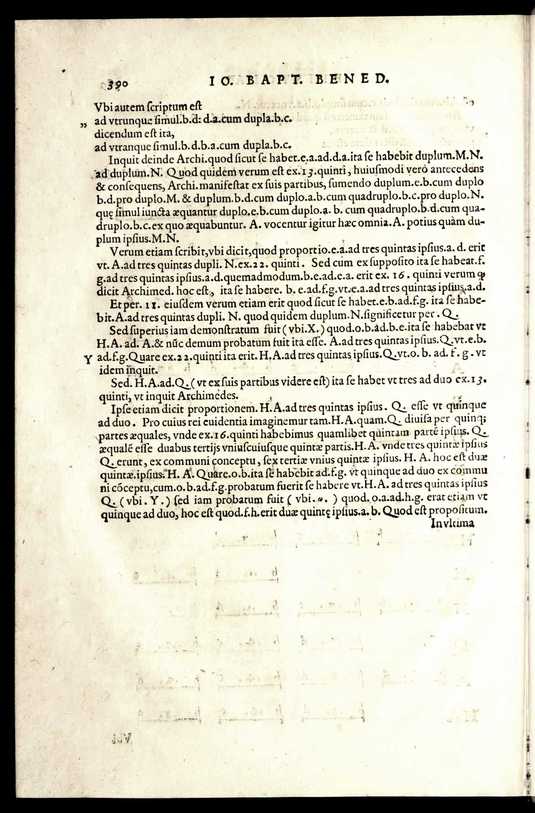 390 IO. BAPT. BENED.
Vbi autem scriptum est
„ ad vtrunque simul.b.d: d.a.cum dupla.b.c.
dicendum est ita,
ad vtranque simul.b.d.b.a.cum dupla.b.c.
Inquit deinde Archi.quod sicut se habet.e.a.ad.d.a.ita se habebit duplum.M.N.
ad duplum.N. Quod quidem verum est ex.13.quinti, huiusmodi verò antecedens
& consequens, Archi.manifestat ex suis partibus, sumendo duplum.e.b.cum duplo
b.d.pro duplo.M. & duplum.b.d.cum duplo.a.b.cum quadruplo.b.c.pro duplo.N.
quę simul iuncta æquantur duplo.e.b.cum duplo.a. b. cum quadruplo.b.d.cum qua-
druplo.b.c.ex quo æquabuntur. A. vocentur igitur hæc omnia.A. potius quàm du-
plum ipsius.M.N.
Verum etiam scribit,vbi dicit,quod proportio.e.a.ad tres quintas ipsius.a.d. erit
vt. A.ad tres quintas dupli. N.ex.22. quinti. Sed cum ex supposito ita se habeat.f.
g.ad tres quintas ipsius.a.d.quemadmodum.b.e.ad.e.a. erit ex. 16. quinti verum ꝙ
dicit Archimed. hoc est, ita se habere. b. e.ad.f.g.vt.e.a.ad tres quintas ipsius.a.d.
Et per. 11. eiusdem verum etiam erit quod sicut se habet.e.b.ad.f.g. ita se habe-
bit.A.ad tres quintas dupli. N. quod quidem duplum.N.significetur per. Q.
Sed superius iam demonstratum fuit (vbi.X.) quod.o.b.ad.b.e.ita se habebat vt
H.A. ad. A.& nũc demum probatum fuit ita esse. A.ad tres quintas ipsius.Q.vt.e.b.
Y ad.f.g.Quare ex.22.quinti ita erit. H.A.ad tres quintas ipsius.Q.vt.o. b. ad. f. g. vt
idem inquit.
Sed. H.A.ad.Q.(vt ex suis partibus videre est) ita se habet vt tres ad duo ex.13.
quinti, vt inquit Archimedes.
Ipse etiam dicit proportionem.H.A.ad tres quintas ipsius. Q. esse vt quinque
ad duo. Pro cuius rei euidentia imaginemur tam.H.A.quam.Q. diuisa per quinqꝫ
partes æquales, vnde ex.16.quinti habebimus quamlibet quintam partẽ ipsius. Q.
æqualẽ esse duabus tertijs vniuscuiusque quintæ partis.H.A. vnde tres quintæ ipsius
Q. erunt, ex communi conceptu, sex tertiæ vnius quintæ ipsius. H. A. hoc est duæ
quintæ.ipsius.H. A. Quare.o.b.ita se habebit ad.f.g. vt quinque ad duo ex commu
ni cõceptu,cum.o.b.ad.f.g.probatum fuerit se habere vt.H.A. ad tres quintas ipsius
Q. (vbi. Y.) sed iam probatum fuit ( vbi. ) quod. o.a.ad.h.g. erat etiam vt
quinque ad duo, hoc est quod.f.h.erit duæ quintę ipsius.a. b. Quod est propositum.
In vltima